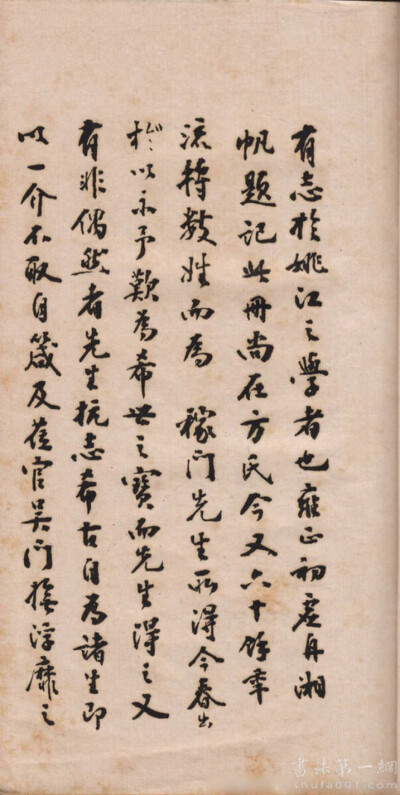 有志於姚江之學者也雍正初虛舟湘
帆題記此冊尚在方氏今又六十餘年
流轉數姓而為 稼門先生所得今春出
於以示予歎為希世之寶而先生得之又
有非偶然者先生抗志希古自為諸生即
以一介不取自箴及莅官吳門撫浮靡之
書法第一網
shufa001.com